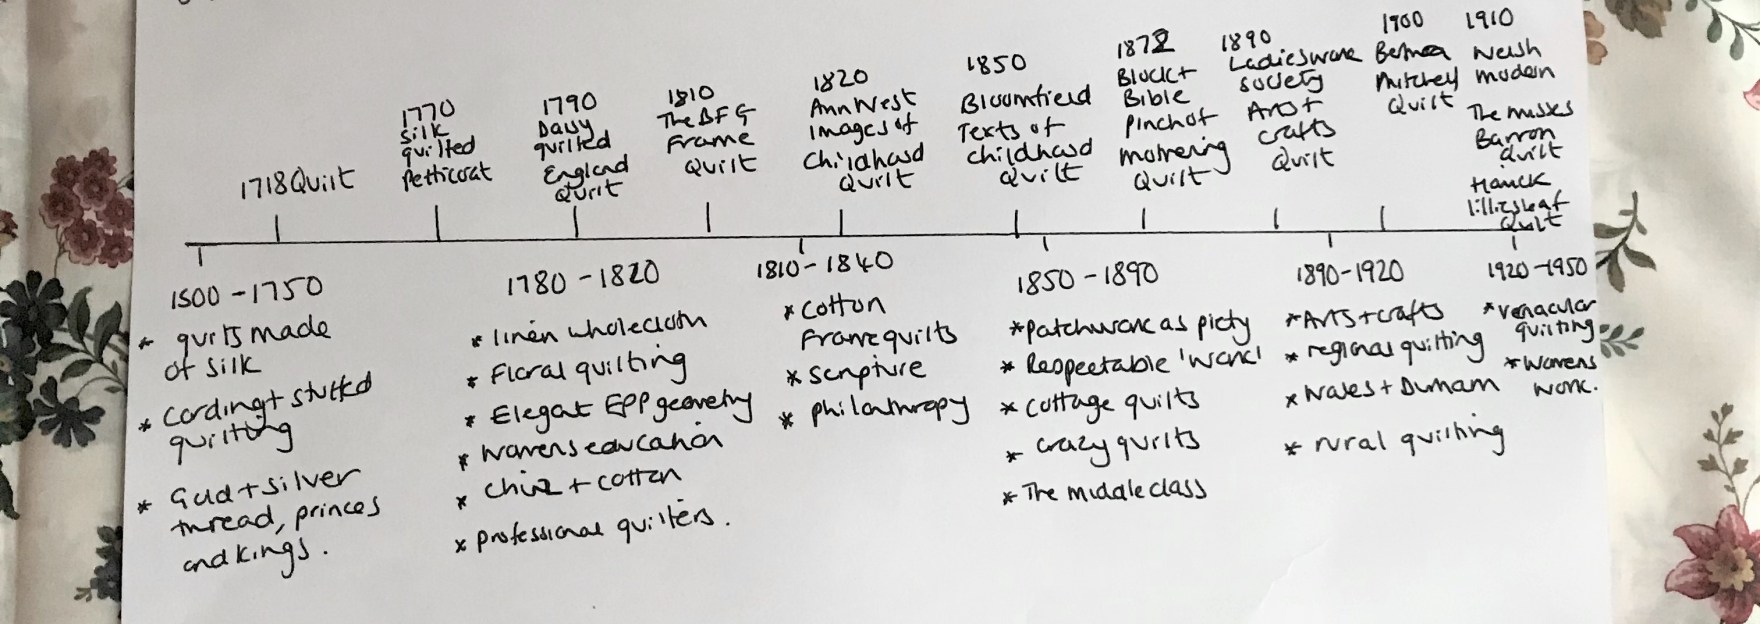 1718 Quilt
1770
Silk
quilted
Petticoat
1790
Daisy
quilted
England
Quilt
1810
The
Frame
Quilt
1820
Ann West
Images of
Childhood
Quilt
1850
Bloomfield
Texts of
childhood
Quilt
1872
Block +
Bible
Pinch of
Quilt
1890
Ladies work
society
Arts +
crafts
Quilt
1900
Mitchell
Quilt
1910
Welsh
modern
The misses
Barron
Quilt
Quilt
1500 - 1750
* quilts made
of silk
* Cording + stuffed
quilting
* Gold + silver
thread, princes
and kings.
1780 - 1820
* linen wholecloth
* Floral quilting
* Elegant EPP geometry
* womens education
* chinz + cotton
* professional quilters.
1810 - 1840
* Cotton
Frame quilts
* scripture
* philanthropy
1850 - 1890
* patchwork as piety
* Respectable 'work'
* cottage quilts
* crazy quilts
* The middle class
1890-1920
* Arts + crafts
* regional quilting
* Wales + Durham
* rural quilting
1920 - 1950
* venacular
quilting
* womens
work.